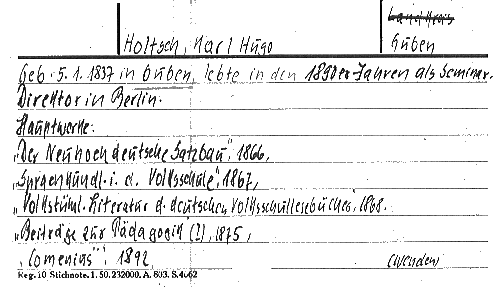 Landkreis
Holtsch, Karl Hugo Guben
Geb. 5.1.1837 in Guben, lebte in den 1890er Jahren als Seminar-
Direktor in Berlin.
Hauptwerke:
„Der Neuhochdeutsche Satzbau", 1866,
„Sprachkundl. i. d. Volksschule", 1867,
„Volkstüml. Literatur d. deutschen Volksschullesebücher", 1868.
„Beiträge zur Pädagogik (?), 1875,
„Comenius": 1892, (wenden)
Reg. 10 Stichnote. 1. 50. 232000. A. 803. S.4.62